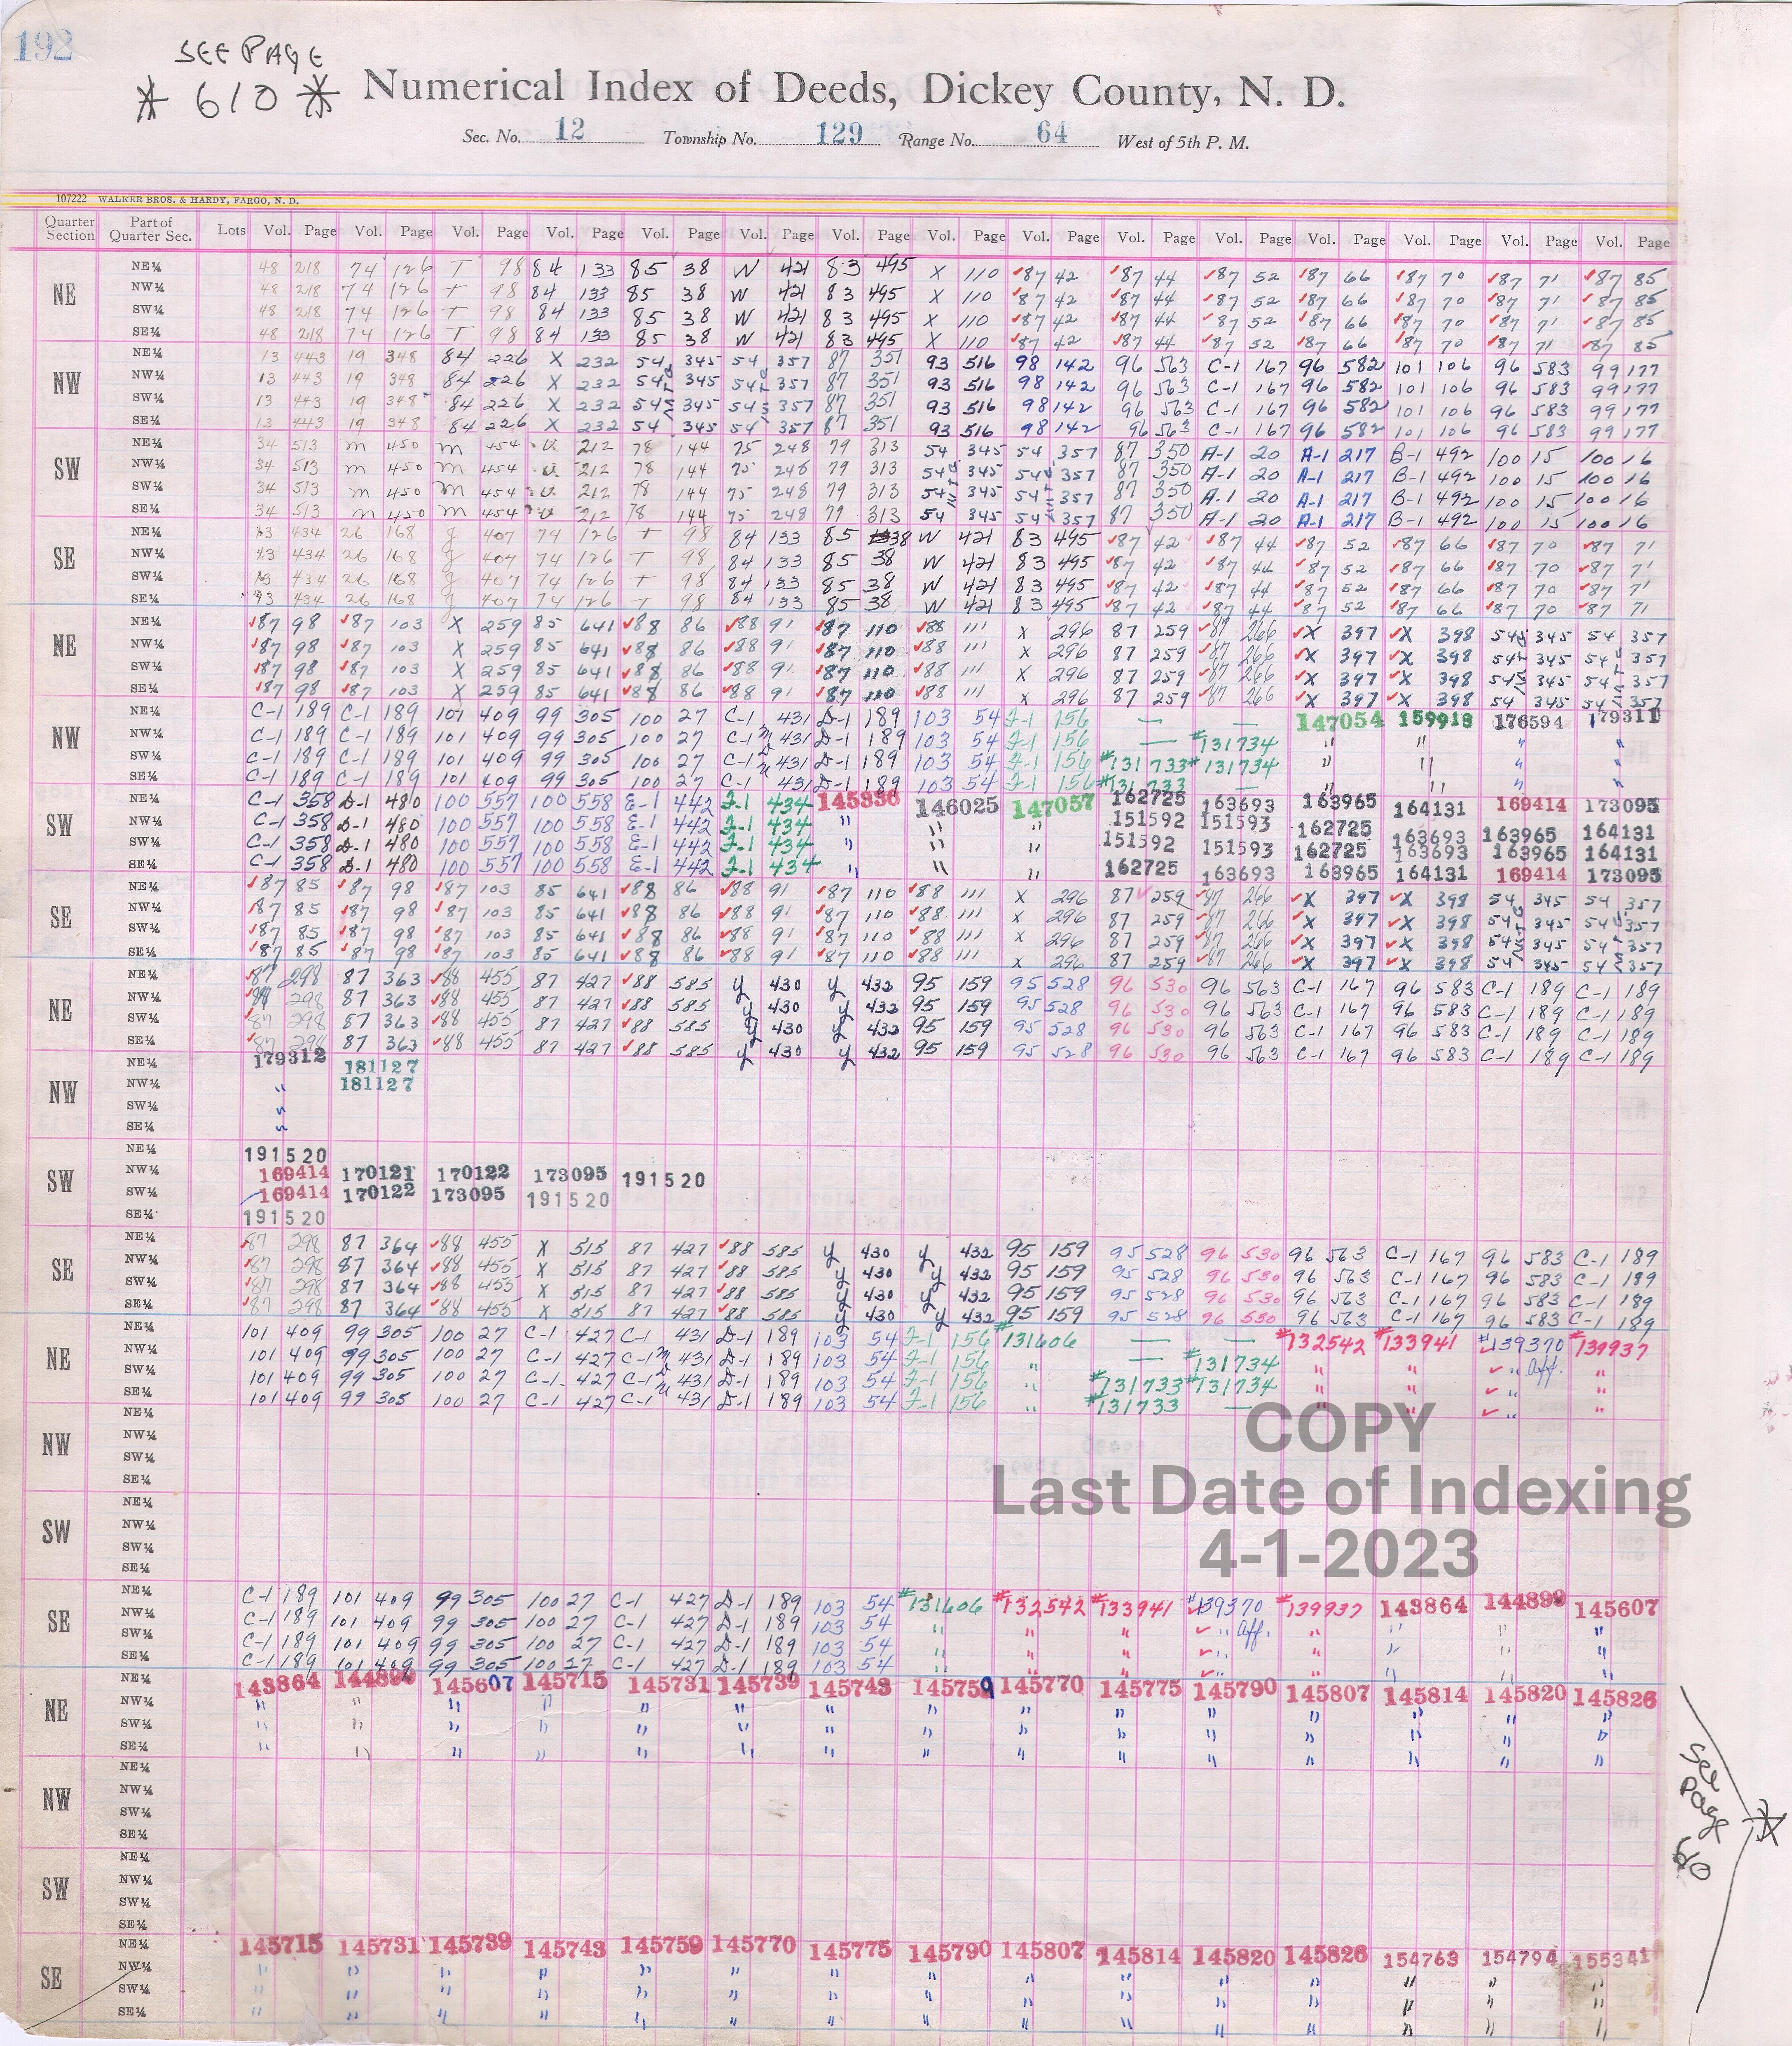 192
SEE PAGE
* 610 *
Numerical Index of Deeds, Dickey County, N. D.
Sec. No. 12 Township No. 129 Range No. 64 West of 5th P. M.
107222 WALKER BROS. & HARDY, FARGO, N. D.
Quarter Section Part of Quarter Sec. Lots Vol. Page Vol. Page Vol. Page Vol. Page Vol. Page Vol. Page Vol. Page Vol. Page Vol. Page Vol. Page Vol. Page Vol. Page Vol. Page Vol. Page Vol. Page
NE
NE¼ 48 218 74 126 T 98 84 133 85 38 W 421 83 495 X 110 ✓87 42 ✓87 44 ✓87 52 ✓87 66 ✓87 70 ✓87 71 ✓87 85
NW¼ 48 218 74 126 T 98 84 133 85 38 W 421 83 495 X 110 ✓87 42 ✓87 44 ✓87 52 ✓87 66 ✓87 70 ✓87 71 ✓87 85
SW¼ 48 218 74 126 T 98 84 133 85 38 W 421 83 495 X 110 ✓87 42 ✓87 44 ✓87 52 ✓87 66 ✓87 70 ✓87 71 ✓87 85
SE¼ 48 218 74 126 T 98 84 133 85 38 W 421 83 495 X 110 ✓87 42 ✓87 44 ✓87 52 ✓87 66 ✓87 70 ✓87 71 ✓87 85
NW
NE¼ 13 443 19 348 84 226 X 232 54 345 54 357 87 351 93 516 98 142 96 563 C-1 167 96 582 101 106 96 583 99 177
NW¼ 13 443 19 348 84 226 X 232 54 345 54 357 87 351 93 516 98 142 96 563 C-1 167 96 582 101 106 96 583 99 177
SW¼ 13 443 19 348 84 226 X 232 54 345 54 357 87 351 93 516 98 142 96 563 C-1 167 96 582 101 106 96 583 99 177
SE¼ 13 443 19 348 84 226 X 232 54 345 54 357 87 351 93 516 98 142 96 563 C-1 167 96 582 101 106 96 583 99 177
SW
NE¼ 34 513 m 450 m 454 U 212 78 144 75 248 79 313 54 345 54 357 87 350 A-1 20 A-1 217 B-1 492 100 15 100 16
NW¼ 34 513 m 450 m 454 U 212 78 144 75 248 79 313 54 345 54 357 87 350 A-1 20 A-1 217 B-1 492 100 15 100 16
SW¼ 34 513 m 450 m 454 U 212 78 144 75 248 79 313 54 345 54 357 87 350 A-1 20 A-1 217 B-1 492 100 15 100 16
SE¼ 34 513 m 450 m 454 U 212 78 144 75 248 79 313 54 345 54 357 87 350 A-1 20 A-1 217 B-1 492 100 15 100 16
SE
NE¼ 13 434 26 168 g 407 74 126 T 98 84 133 85 38 W 421 83 495 ✓87 42 ✓87 44 ✓87 52 ✓87 66 ✓87 70 ✓87 71
NW¼ 13 434 26 168 g 407 74 126 T 98 84 133 85 38 W 421 83 495 ✓87 42 ✓87 44 ✓87 52 ✓87 66 ✓87 70 ✓87 71
SW¼ 13 434 26 168 g 407 74 126 T 98 84 133 85 38 W 421 83 495 ✓87 42 ✓87 44 ✓87 52 ✓87 66 ✓87 70 ✓87 71
SE¼ 93 434 26 168 g 407 74 126 T 98 84 133 85 38 W 421 83 495 ✓87 42 ✓87 44 ✓87 52 ✓87 66 ✓87 70 ✓87 71
NE
NE¼ ✓87 98 ✓87 103 X 259 85 641 ✓88 86 ✓88 91 ✓87 110 ✓88 111 X 296 87 259 ✓87 266 ✓X 397 ✓X 398 54 345 54 357
NW¼ ✓87 98 ✓87 103 X 259 85 641 ✓88 86 ✓88 91 ✓87 110 ✓88 111 X 296 87 259 ✓87 266 ✓X 397 ✓X 398 54 345 54 357
SW¼ ✓87 98 ✓87 103 X 259 85 641 ✓88 86 ✓88 91 ✓87 110 ✓88 111 X 296 87 259 ✓87 266 ✓X 397 ✓X 398 54 345 54 357
SE¼ ✓87 98 ✓87 103 X 259 85 641 ✓88 86 ✓88 91 ✓87 110 ✓88 111 X 296 87 259 ✓87 266 ✓X 397 ✓X 398 54 345 54 357
NW
NE¼ C-1 189 C-1 189 101 409 99 305 100 27 C-1 431 D-1 189 103 54 F-1 156 — — 147054 159918 176594 179311
NW¼ C-1 189 C-1 189 101 409 99 305 100 27 C-1 431 D-1 189 103 54 F-1 156 — #131734 " " " "
SW¼ C-1 189 C-1 189 101 409 99 305 100 27 C-1 431 D-1 189 103 54 F-1 156 #131733 #131734 " " " "
SE¼ C-1 189 C-1 189 101 409 99 305 100 27 C-1 431 D-1 189 103 54 F-1 156 #131733 — " " " "
SW
NE¼ C-1 358 D-1 480 100 557 100 558 E-1 442 F-1 434 145336 146025 147057 162725 163693 163965 164131 169414 173095
NW¼ C-1 358 D-1 480 100 557 100 558 E-1 442 F-1 434 " " " 151592 151593 162725 163693 163965 164131
SW¼ C-1 358 D-1 480 100 557 100 558 E-1 442 F-1 434 " " " 151592 151593 162725 163693 163965 164131
SE¼ C-1 358 D-1 480 100 557 100 558 E-1 442 F-1 434 " " " 162725 163693 163965 164131 169414 173095
SE
NE¼ ✓87 85 ✓87 98 ✓87 103 85 641 ✓88 86 ✓88 91 ✓87 110 ✓88 111 X 296 87 259 ✓87 266 ✓X 397 ✓X 398 54 345 54 357
NW¼ ✓87 85 ✓87 98 ✓87 103 85 641 ✓88 86 ✓88 91 ✓87 110 ✓88 111 X 296 87 259 ✓87 266 ✓X 397 ✓X 398 54 345 54 357
SW¼ ✓87 85 ✓87 98 ✓87 103 85 641 ✓88 86 ✓88 91 ✓87 110 ✓88 111 X 296 87 259 ✓87 266 ✓X 397 ✓X 398 54 345 54 357
SE¼ ✓87 85 ✓87 98 ✓87 103 85 641 ✓88 86 ✓88 91 ✓87 110 ✓88 111 X 296 87 259 ✓87 266 ✓X 397 ✓X 398 54 345 54 357
NE
NE¼ ✓87 298 87 363 ✓88 455 87 427 ✓88 585 y 430 y 432 95 159 95 528 96 530 96 563 C-1 167 96 583 C-1 189 C-1 189
NW¼ ✓87 298 87 363 ✓88 455 87 427 ✓88 585 y 430 y 432 95 159 95 528 96 530 96 563 C-1 167 96 583 C-1 189 C-1 189
SW¼ ✓87 298 87 363 ✓88 455 87 427 ✓88 585 y 430 y 432 95 159 95 528 96 530 96 563 C-1 167 96 583 C-1 189 C-1 189
SE¼ ✓87 298 87 363 ✓88 455 87 427 ✓88 585 y 430 y 432 95 159 95 528 96 530 96 563 C-1 167 96 583 C-1 189 C-1 189
NW
NE¼ 179312 181127
NW¼ " 181127
SW¼ "
SE¼ "
SW
NE¼ 191520
NW¼ 169414 170121 170122 173095 191520
SW¼ 169414 170122 173095 191520
SE¼ 191520
SE
NE¼ ✓87 298 87 364 ✓88 455 X 515 87 427 ✓88 585 y 430 y 432 95 159 95 528 96 530 96 563 C-1 167 96 583 C-1 189
NW¼ ✓87 298 87 364 ✓88 455 X 515 87 427 ✓88 585 y 430 y 432 95 159 95 528 96 530 96 563 C-1 167 96 583 C-1 189
SW¼ ✓87 298 87 364 ✓88 455 X 515 87 427 ✓88 585 y 430 y 432 95 159 95 528 96 530 96 563 C-1 167 96 583 C-1 189
SE¼ ✓87 298 87 364 ✓88 455 X 515 87 427 ✓88 585 y 430 y 432 95 159 95 528 96 530 96 563 C-1 167 96 583 C-1 189
NE
NE¼ 101 409 99 305 100 27 C-1 427 C-1 431 D-1 189 103 54 F-1 156 #131606 — — #132542 #133941 #139370 #139937
NW¼ 101 409 99 305 100 27 C-1 427 C-1 431 D-1 189 103 54 F-1 156 " — #131734 " " ✓ " Aff. "
SW¼ 101 409 99 305 100 27 C-1 427 C-1 431 D-1 189 103 54 F-1 156 " #131733 #131734 " " ✓ " "
SE¼ 101 409 99 305 100 27 C-1 427 C-1 431 D-1 189 103 54 F-1 156 " #131733 — " " ✓ " "
NW
NE¼
NW¼
SW¼
SE¼
COPY
Last Date of Indexing
4-1-2023
SW
NE¼
NW¼
SW¼
SE¼
SE
NE¼ C-1 189 101 409 99 305 100 27 C-1 427 D-1 189 103 54 #131606 #132542 #133941 #139370 #139937 143864 144899 145607
NW¼ C-1 189 101 409 99 305 100 27 C-1 427 D-1 189 103 54 " " " ✓ " Aff. " " " "
SW¼ C-1 189 101 409 99 305 100 27 C-1 427 D-1 189 103 54 " " " ✓ " " " " "
SE¼ C-1 189 101 409 99 305 100 27 C-1 427 D-1 189 103 54 " " " ✓ " " " " "
NE
NE¼ 143864 144899 145607 145715 145731 145739 145743 145759 145770 145775 145790 145807 145814 145820 145826
NW¼ " " " " " " " " " " " " " " "
SW¼ " " " " " " " " " " " " " " "
SE¼ " " " " " " " " " " " " " " "
NW
NE¼
NW¼
SW¼
SE¼
See Page 610
*
SW
NE¼
NW¼
SW¼
SE¼
SE
NE¼ 145715 145731 145739 145743 145759 145770 145775 145790 145807 145814 145820 145826 154763 154794 155341
NW¼ " " " " " " " " " " " " " " "
SW¼ " " " " " " " " " " " " " " "
SE¼ " " " " " " " " " " " " " " "